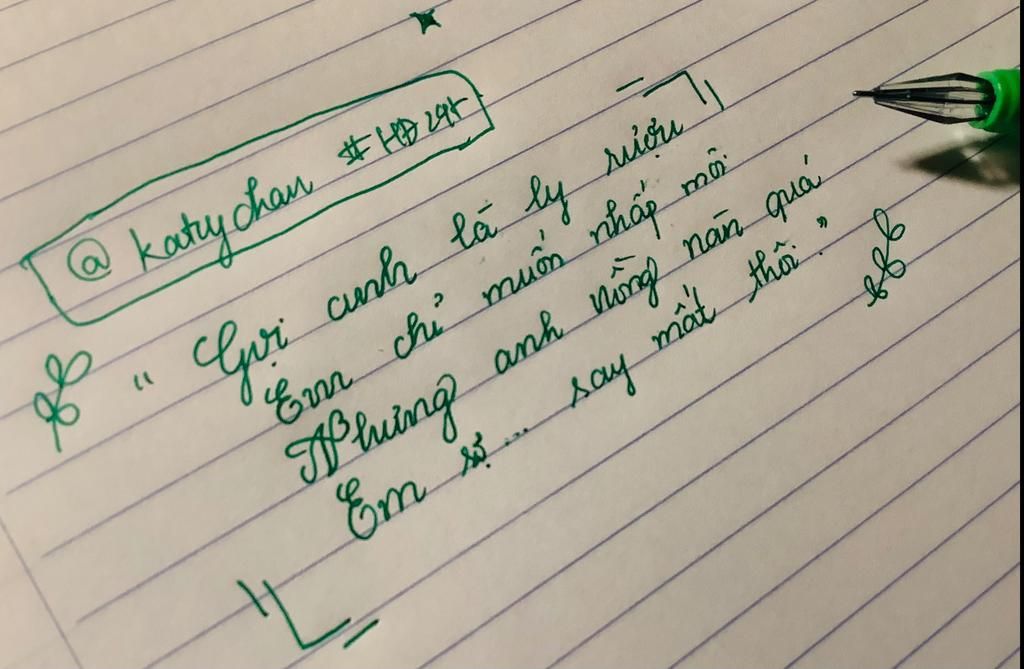 @katychan #HĐ 24t
"Gọi anh là ly rượu
Em chỉ muốn nhấp môi
Nhưng anh nồng nàn quá
Em sợ... say mất thôi."